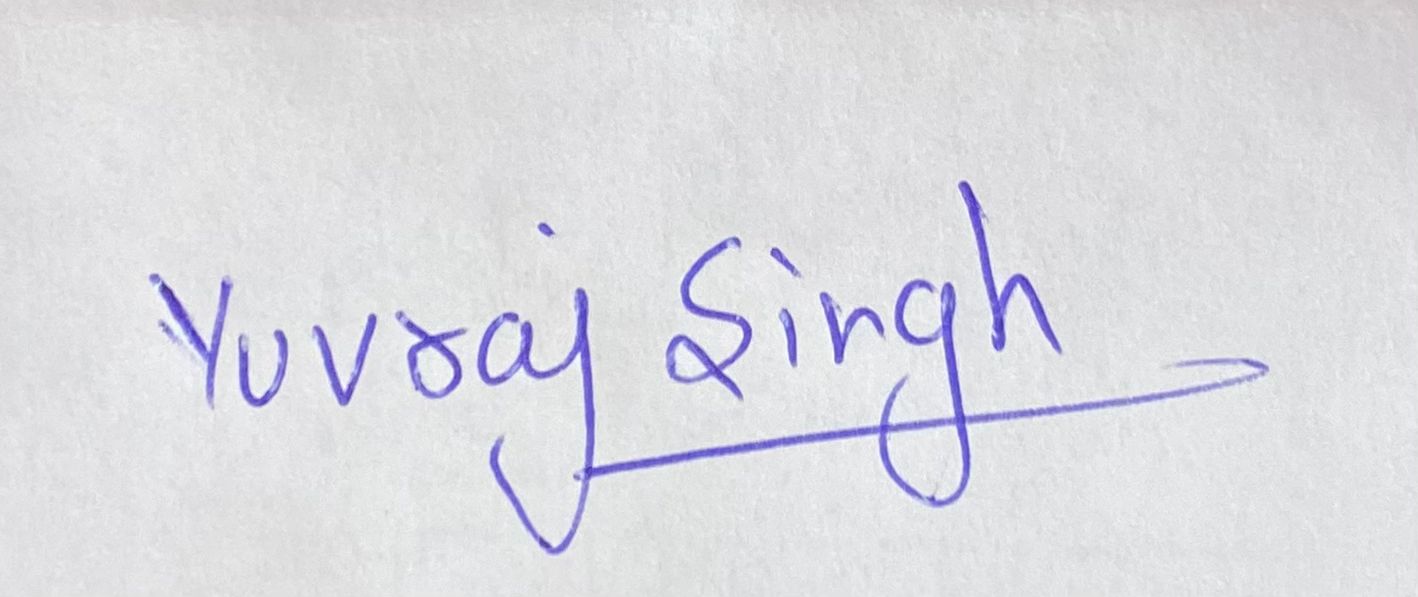 Yuvraj Singh